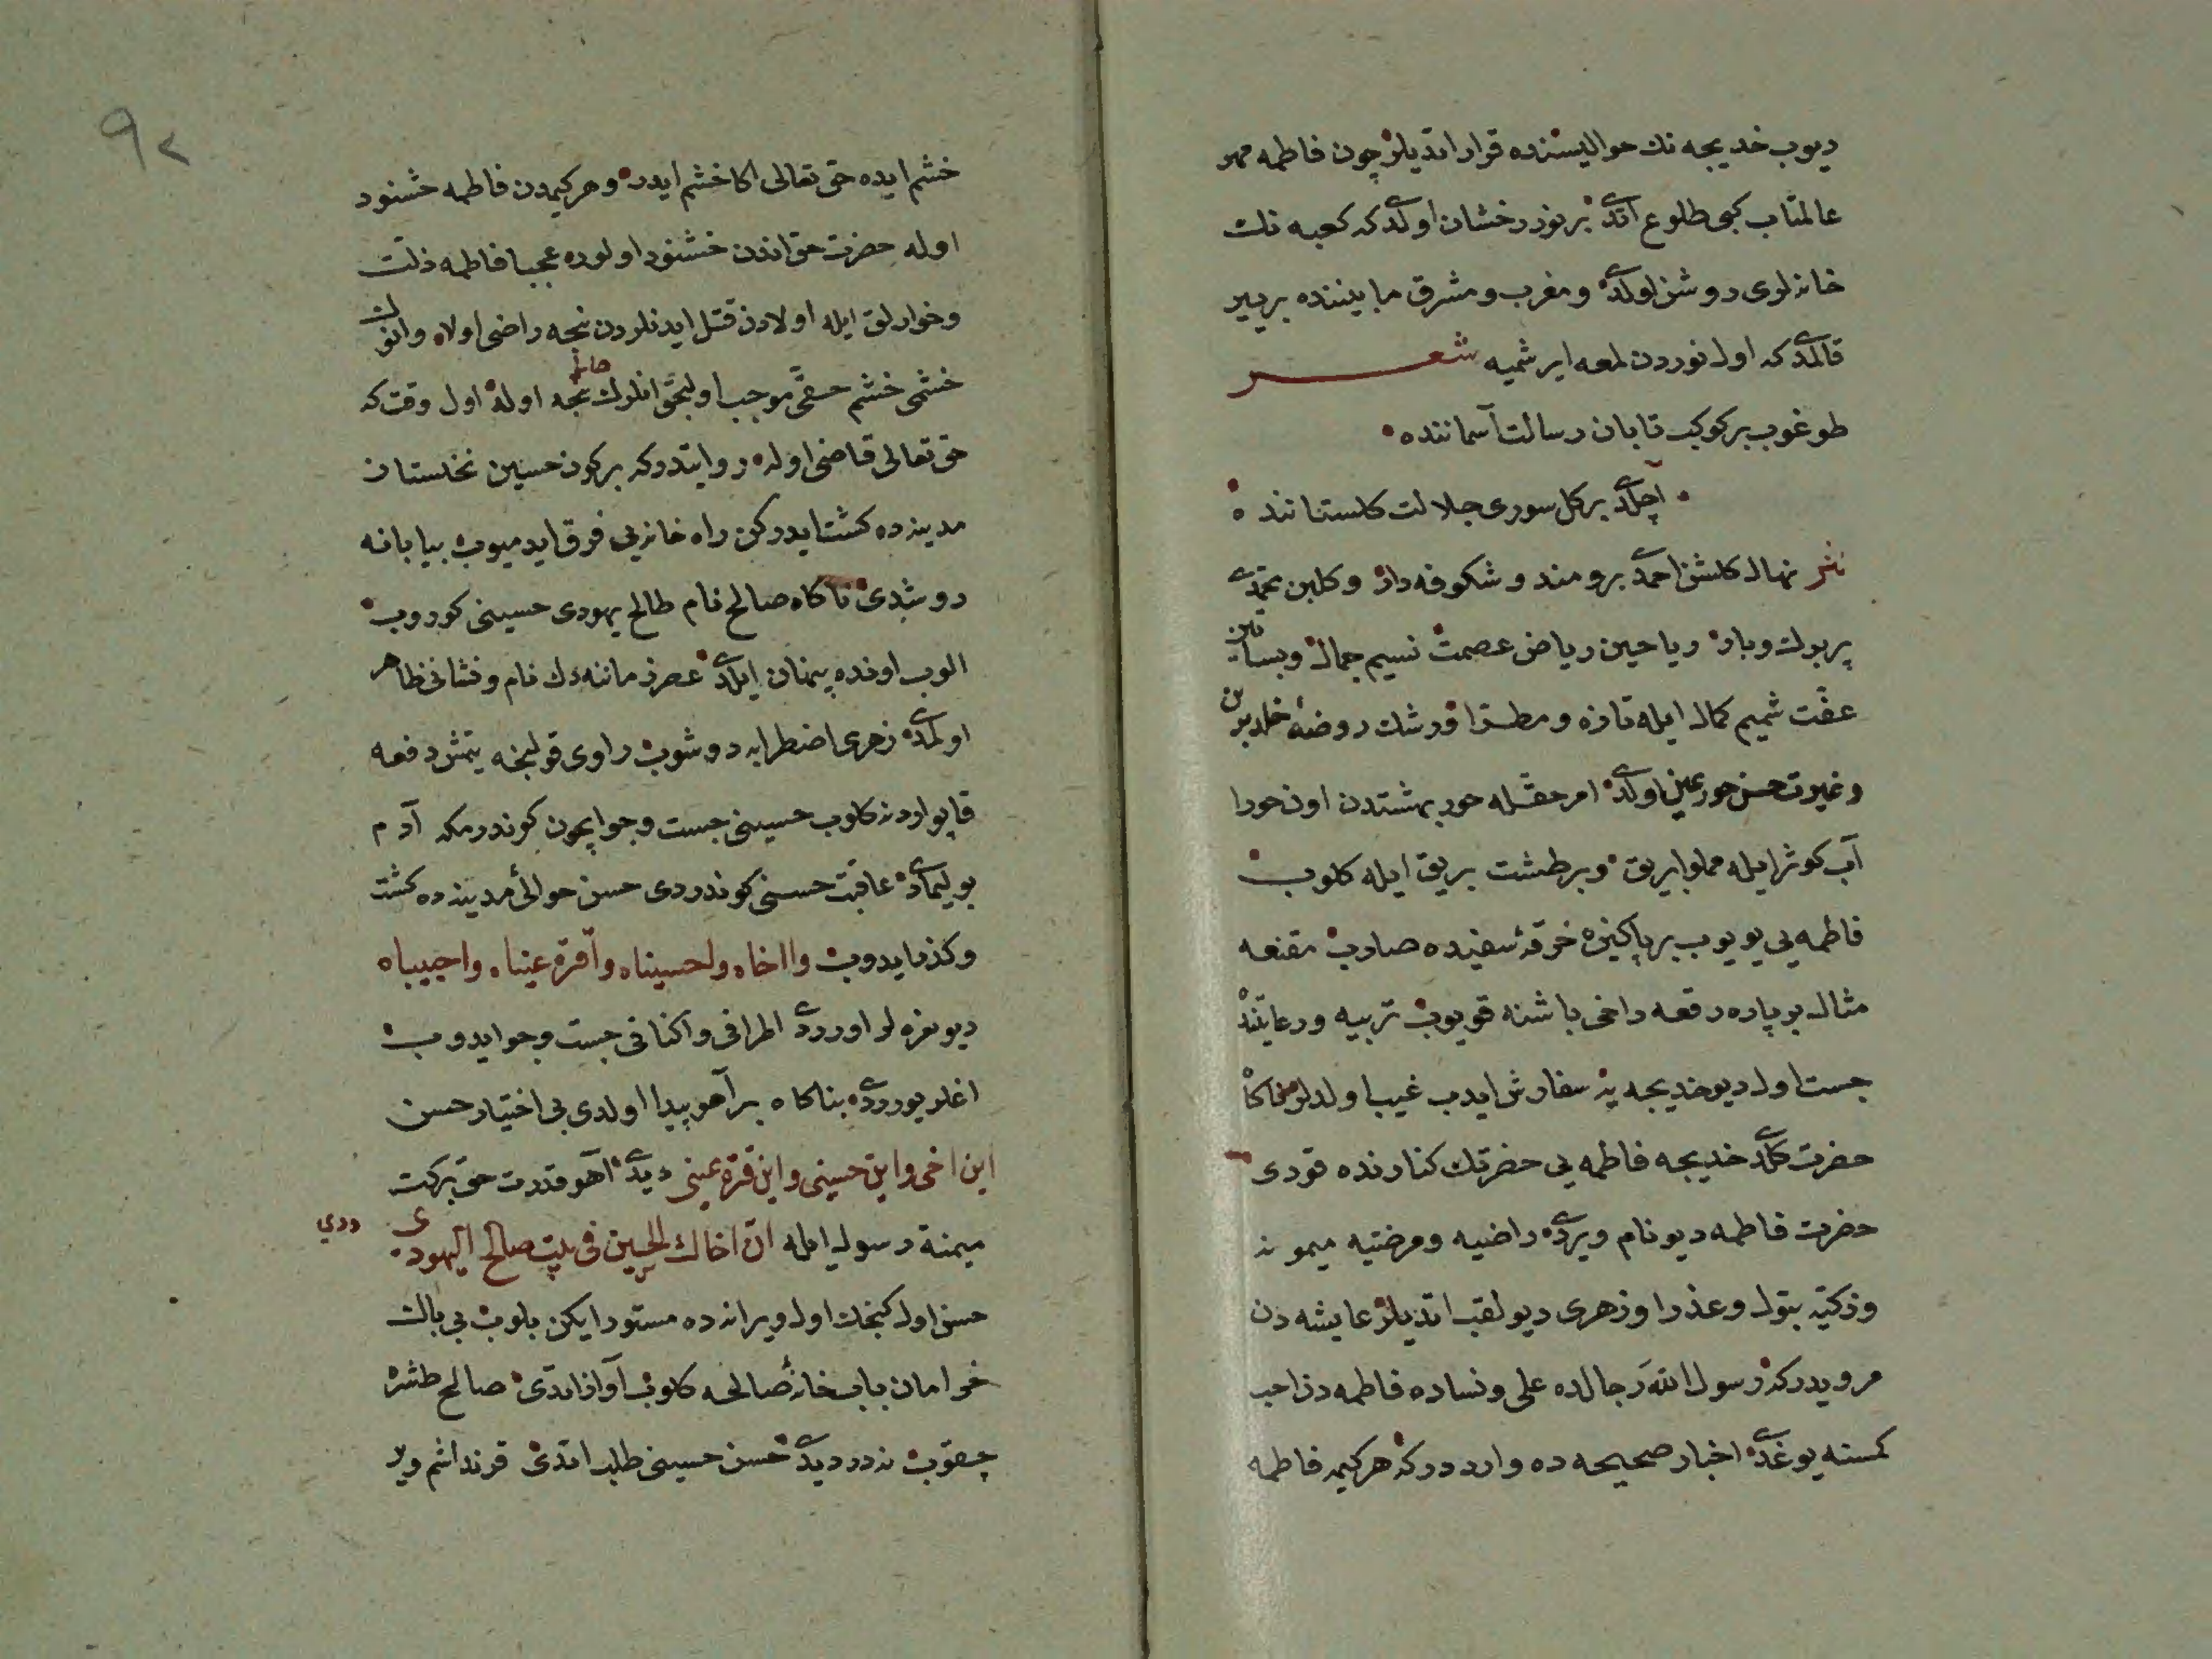 ديوب خديجه نك حواليسنده قرار اتديلر چون فاطمه مهر
عالمتاب كبی طلوع اتدی بر نور درخشان اولدی كه كعبه نك
خانه لری روشن اولدی و مغرب و مشرق مابيننده بر ير
قالمدی كه اول نوردن لمعه ايرشميه شعر
طوغوب بر كوكب تابان رسالت آسماننده
آچلدی بر كل سوری جلالت كلستاننده
نثر نهال كلشن احمدی برومند و شكوفه دار و كلبن محمدی
پر برك و بار رياحين رياض عصمت نسيم جمال و بساتين
عفت شميم كمال ايله تازه و مطرا و رشك روضهٔ خلد برين
و غيرت حسن حور عين اولدی امر حقله حور بهشتدن اون حورا
آب كوثر ايله مملو ابريق و بر طشت بريق ايله كلوب
فاطمه يی يويوب بر پاكيزه خرقهٔ سفيده صاروب مقنعه
مثال بر پاره رقعه داخی باشنه قويوب تربيه و رعايتنده
جست اول ديو خديجه يه سفارش ايدب غيب اولدلر ناكاه
حضرت كلدی خديجه فاطمه يی حضرتك كنارنده قودی
حضرت فاطمه ديو نام ويردی راضيه و مرضيه ميمونه
و زكيه بتول و عذرا و زهری ديو لقب اتديلر عايشه دن
مرويدر كه رسول الله رجالده علی و نساده فاطمه دن احب
كمسنه يوغدی اخبار صحيحه ده وارد در كه هر كيمه فاطمه
٩٢
خشم ايده حق تعالی اكا خشم ايدر و هر كيمدن فاطمه خشنود
اوله حضرت حق اندن خشنود اولور عجبا فاطمه ذلت
و خوارلق ايله اولادن قتل ايدنلردن نجه راضی اولا و انك
خشمی خشم حقی موجب اوليجق انلرك حالی نجه اوله اول وقت كه
حق تعالی قاضی اوله روايتدر كه بر كون حسين نخلستان
مدينه ده كشت ايدركن راه خانه يی فرق ايدميوب بيابانه
دوشدی ناكاه صالح نام طالح يهودی حسينی كوروب
الوب اونده پنهان ايلدی عصر زماننه دك نام و نشانی ظاهر
اولمدی زهری اضطرابه دوشوب راوی قولنجه يتمش دفعه
قاپو اردنه كلوب حسينی جست و جو ايچون كوندرمكه آدم
بوليمادی عاقبت حسنی كوندردی حسن حوالیٔ مدينه ده كشت
و كذر ايدوب وا اخاه واحسيناه وا قرة عيناه واحبيباه
ديو نعره لر اوردی اطرافی و اكنافی جست و جو ايدوب
اغلر يوردی بناكاه بر آهو پيدا اولدی بی اختيار حسن
اين اخی و اين حسينی و اين قرة عينی ديدی آهو قدرت حق بركت
ميمنة رسول ايله ان اخاك الحسين فی بيت صالح اليهودی
ددی
حسن اول كنجك اول ويرانه ده مستور ايكن بلوب بی باك
خرامان باب خانهٔ صالحه كلوب آواز اتدی صالح طشره
چقوب نه در ديدی حسن حسينی طلب اتدی قرنداشم وير